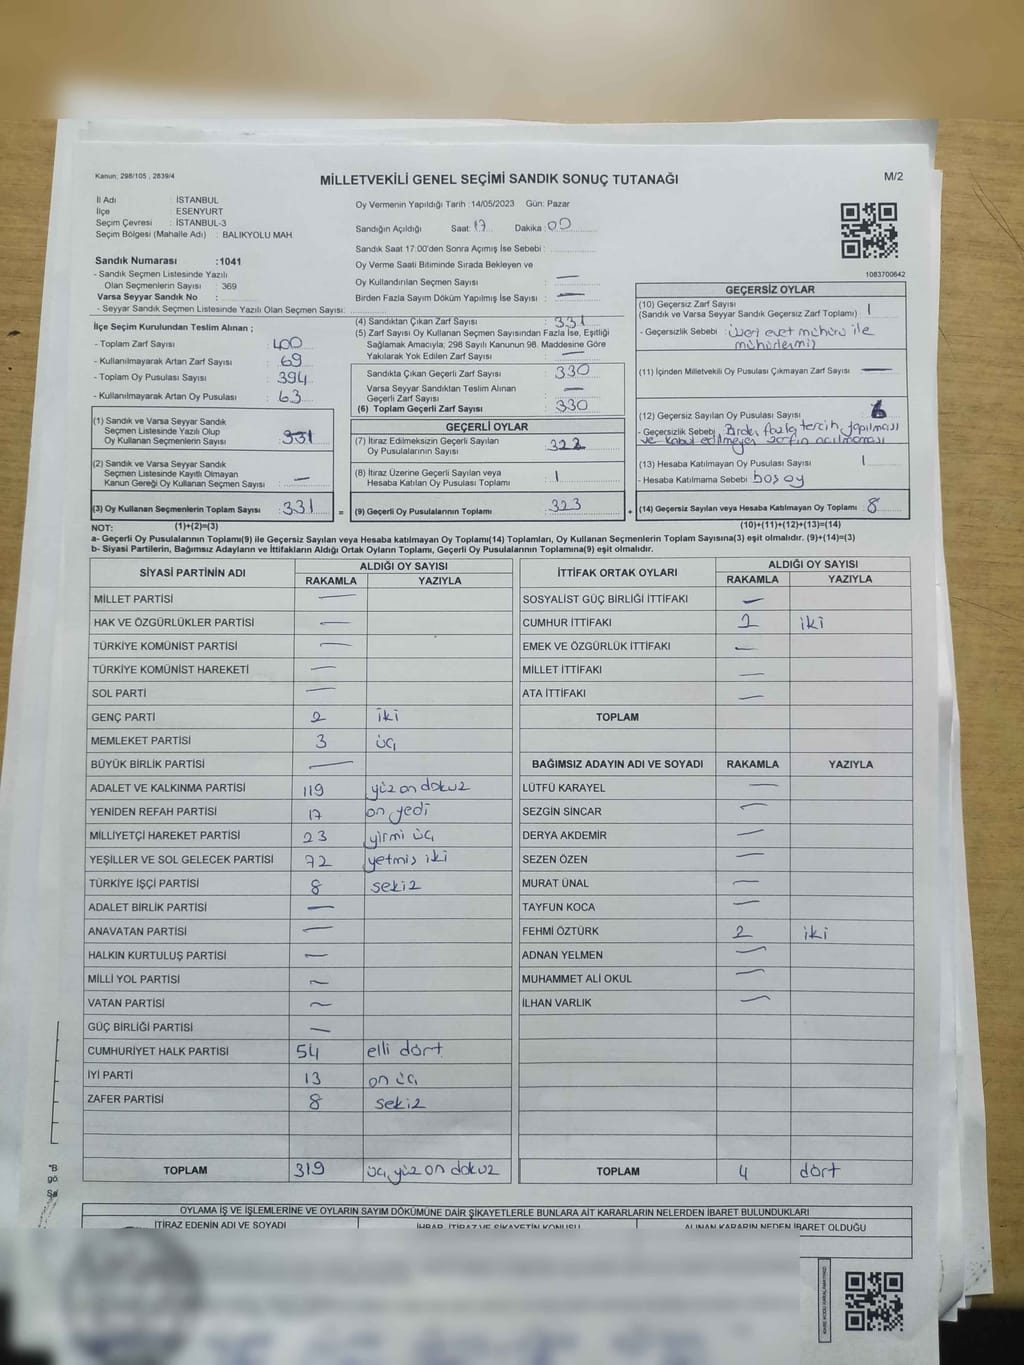 Kanun, 298/105 , 2839/4
MİLLETVEKİLİ GENEL SEÇİMİ SANDIK SONUÇ TUTANAĞI
M/2
İl Adı : İSTANBUL
İlçe : ESENYURT
Seçim Çevresi : İSTANBUL-3
Seçim Bölgesi (Mahalle Adı) : BALIKYOLU MAH.
Sandık Numarası :1041
- Sandık Seçmen Listesinde Yazılı
Olan Seçmenlerin Sayısı : 369
Varsa Seyyar Sandık No :
- Seyyar Sandık Listesinde Yazılı Olan Seçmen Sayısı:
Oy Vermenin Yapıldığı Tarih :14/05/2023 Gün: Pazar
Sandığın Açıldığı Saat: 17 Dakika: 00
Sandık Saat 17:00'den Sonra Açımış İse Sebebi :
Oy Verme Saati Bitiminde Sırada Bekleyen ve
Oy Kullandırılan Seçmen Sayısı : —
Birden Fazla Sayım Döküm Yapılmış İse Sayısı : —
1083700642
İlçe Seçim Kurulundan Teslim Alınan ;
- Toplam Zarf Sayısı : 400
- Kullanılmayarak Artan Zarf Sayısı : 69
- Toplam Oy Pusulası Sayısı : 394
- Kullanılmayarak Artan Oy Pusulası : 63
(1) Sandık ve Varsa Seyyar Sandık
Seçmen Listesinde Yazılı Olup
Oy Kullanan Seçmenlerin Sayısı : 331
(2) Sandık ve Varsa Seyyar Sandık
Seçmen Listesinde Kayıtlı Olmayan
Kanun Gereği Oy Kullanan Seçmen Sayısı : —
(3) Oy Kullanan Seçmenlerin Toplam Sayısı : 331
(4) Sandıktan Çıkan Zarf Sayısı : 331
(5) Zarf Sayısı Oy Kullanan Seçmen Sayısından Fazla İse, Eşitliği
Sağlamak Amacıyla; 298 Sayılı Kanunun 98. Maddesine Göre
Yakılarak Yok Edilen Zarf Sayısı : —
Sandıkta Çıkan Geçerli Zarf Sayısı : 330
Varsa Seyyar Sandıktan Teslim Alınan
Geçerli Zarf Sayısı : —
(6) Toplam Geçerli Zarf Sayısı : 330
GEÇERLİ OYLAR
(7) İtiraz Edilmeksizin Geçerli Sayılan
Oy Pusulalarının Sayısı : 322
(8) İtiraz Üzerine Geçerli Sayılan veya
Hesaba Katılan Oy Pusulası Toplamı : 1
= (9) Geçerli Oy Pusulalarının Toplamı : 323
GEÇERSİZ OYLAR
(10) Geçersiz Zarf Sayısı
(Sandık ve Varsa Seyyar Sandık Geçersiz Zarf Toplamı) : 1
- Geçersizlik Sebebi : üzeri evet mührü ile
mühürlenmiş
(11) İçinden Milletvekili Oy Pusulası Çıkmayan Zarf Sayısı : —
(12) Geçersiz Sayılan Oy Pusulası Sayısı : 6
- Geçersizlik Sebebi : Birden fazla tercih yapılması
ve kabul edilmeyen zarfın açılmaması
(13) Hesaba Katılmayan Oy Pusulası Sayısı : 1
- Hesaba Katılmama Sebebi : boş oy
+ (14) Geçersiz Sayılan veya Hesaba Katılmayan Oy Toplamı : 8
NOT: (1)+(2)=(3) (10)+(11)+(12)+(13)=(14)
a- Geçerli Oy Pusulalarının Toplamı(9) ile Geçersiz Sayılan veya Hesaba katılmayan Oy Toplamı(14) Toplamları, Oy Kullanan Seçmenlerin Toplam Sayısına(3) eşit olmalıdır. (9)+(14)=(3)
b- Siyasi Partilerin, Bağımsız Adayların ve İttifakların Aldığı Ortak Oyların Toplamı, Geçerli Oy Pusulalarının Toplamına(9) eşit olmalıdır.
SİYASİ PARTİNİN ADI ALDIĞI OY SAYISI
RAKAMLA YAZIYLA
MİLLET PARTİSİ —
HAK VE ÖZGÜRLÜKLER PARTİSİ —
TÜRKİYE KOMÜNİST PARTİSİ —
TÜRKİYE KOMÜNİST HAREKETİ —
SOL PARTİ —
GENÇ PARTİ 2 iki
MEMLEKET PARTİSİ 3 üç
BÜYÜK BİRLİK PARTİSİ —
ADALET VE KALKINMA PARTİSİ 119 yüz on dokuz
YENİDEN REFAH PARTİSİ 17 on yedi
MİLLİYETÇİ HAREKET PARTİSİ 23 yirmi üç
YEŞİLLER VE SOL GELECEK PARTİSİ 72 yetmiş iki
TÜRKİYE İŞÇİ PARTİSİ 8 sekiz
ADALET BİRLİK PARTİSİ —
ANAVATAN PARTİSİ —
HALKIN KURTULUŞ PARTİSİ —
MİLLİ YOL PARTİSİ —
VATAN PARTİSİ —
GÜÇ BİRLİĞİ PARTİSİ —
CUMHURİYET HALK PARTİSİ 54 elli dört
İYİ PARTİ 13 on üç
ZAFER PARTİSİ 8 sekiz
TOPLAM 319 üç yüz on dokuz
İTTİFAK ORTAK OYLARI ALDIĞI OY SAYISI
RAKAMLA YAZIYLA
SOSYALİST GÜÇ BİRLİĞİ İTTİFAKI —
CUMHUR İTTİFAKI 2 iki
EMEK VE ÖZGÜRLÜK İTTİFAKI —
MİLLET İTTİFAKI —
ATA İTTİFAKI —
TOPLAM
BAĞIMSIZ ADAYIN ADI VE SOYADI RAKAMLA YAZIYLA
LÜTFÜ KARAYEL —
SEZGİN SİNCAR —
DERYA AKDEMİR —
SEZEN ÖZEN —
MURAT ÜNAL —
TAYFUN KOCA —
FEHMİ ÖZTÜRK 2 iki
ADNAN YELMEN —
MUHAMMET ALİ OKUL —
İLHAN VARLIK —
TOPLAM 4 dört
OYLAMA İŞ VE İŞLEMLERİNE VE OYLARIN SAYIM DÖKÜMÜNE DAİR ŞİKAYETLERLE BUNLARA AİT KARARLARIN NELERDEN İBARET BULUNDUKLARI
İTİRAZ EDENİN ADI VE SOYADI İHBAR, İTİRAZ VE ŞİKAYETİN KONUSU ALINAN KARARIN NEDEN İBARET OLDUĞU